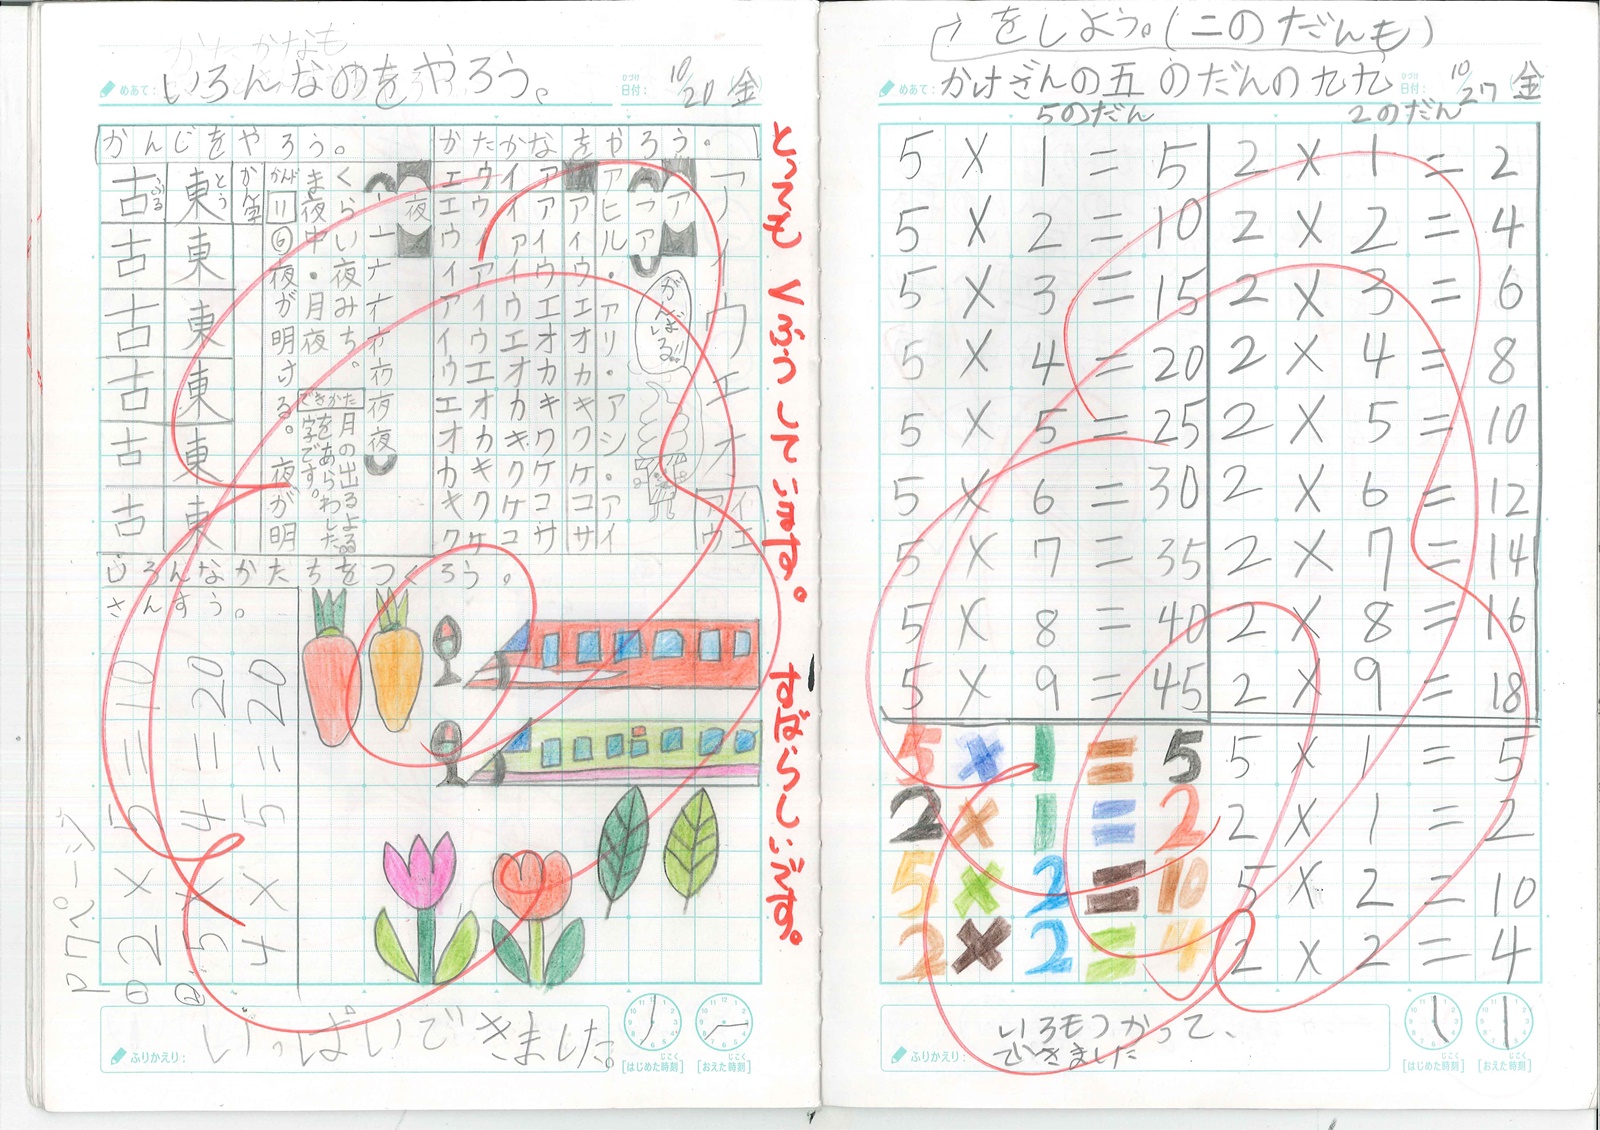 かたかなも
めあて：いろんなのをやろう。
日付：10/20 金
かんじをやろう。
かたかなをやろう。
アイウエオ
アイ
ウエ
ア
ア
がんばる!!
アヒル・アリ・アシ・アイ
アィウエオカキクケコサ
アアイウエオカキクケコサ
イイアイウエオカキクケコ
ウウイアイウエオカキクケ
エエウイアイウエオカキク
夜
夜夜夜
くらい夜みち。
ま夜中・月夜
できかた
月の出るよる
をあらわした
字です。
かんじ
11
⑥夜が明ける。夜が明
かん字
とう
東東東東東東
ふる
古古古古古古
いろんなかたちをつくろう。
さんすう。
77ページ
① 2×5=10
② 5×4=20
4×5=20
とってもくふうしていますね。すばらしいです。
ふりかえり：いっぱいできました。
[はじめた時刻]
[おえた時刻]
をしよう。(二のだんも)
めあて：かけざんの五のだんの九九
日付：10/27 金
5のだん
2のだん
5×1=5
5×2=10
5×3=15
5×4=20
5×5=25
5×6=30
5×7=35
5×8=40
5×9=45
2×1=2
2×2=4
2×3=6
2×4=8
2×5=10
2×6=12
2×7=14
2×8=16
2×9=18
5×1=5
2×1=2
5×2=10
2×2=4
5×1=5
2×1=2
5×2=10
2×2=4
ふりかえり：いろもつかって、
できました
[はじめた時刻]
[おえた時刻]